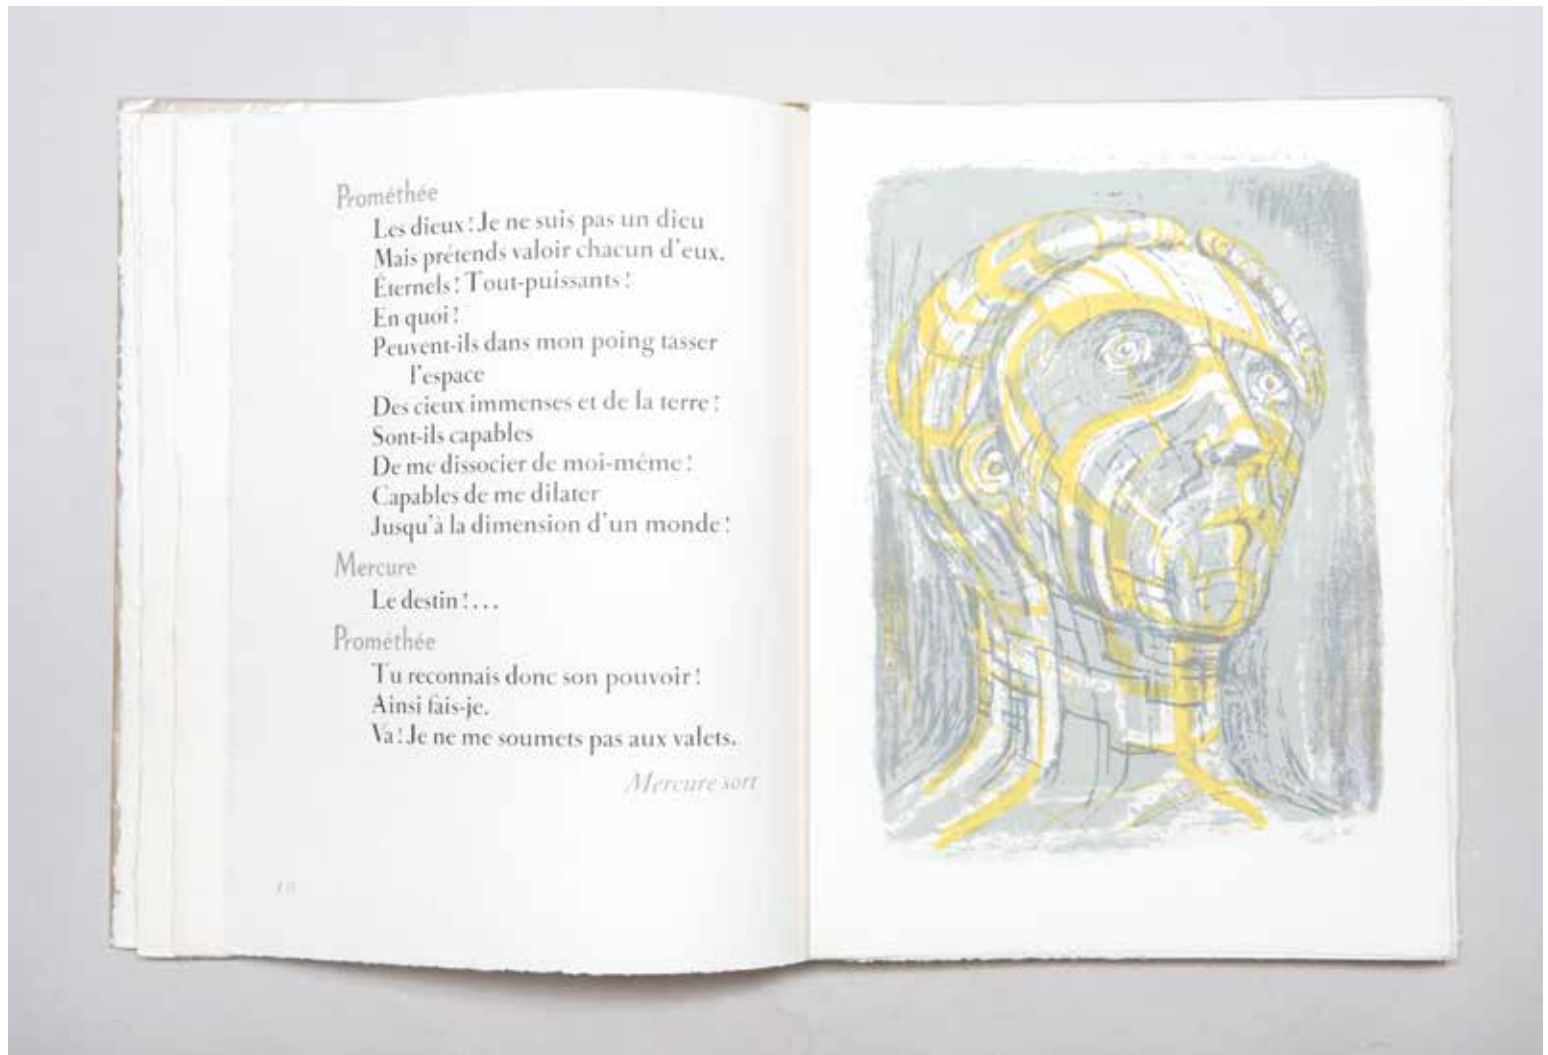 Prométhée
Les dieux! Je ne suis pas un dieu
Mais prétends valoir chacun d'eux.
Éternels! Tout-puissants!
En quoi!
Peuvent-ils dans mon poing tasser
l'espace
Des cieux immenses et de la terre!
Sont-ils capables
De me dissocier de moi-même!
Capables de me dilater
Jusqu'à la dimension d'un monde!
Mercure
Le destin!...
Prométhée
Tu reconnais donc son pouvoir!
Ainsi fais-je.
Va! Je ne me soumets pas aux valets.
Mercure sort